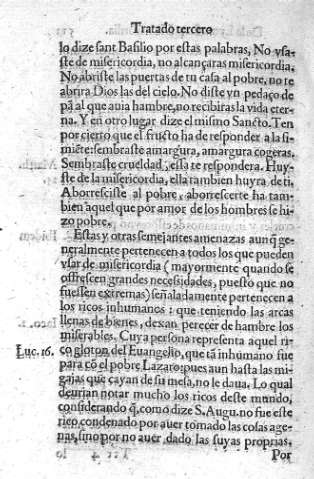 Tratado tercero
lo dize sant Basilio por estas palabras, No vsa-
ste de misericordia, no alcançaras misericordia.
No abriste las puertas de tu casa al pobre, no te
abrira Dios las del cielo. No diste vn pedaço de
pã al que auia hambre, no recibiras la vida eter-
na. Y en otro lugar dize el mismo Sancto. Ten
por cierto que el fructo ha de responder a la si-
miẽte: sembraste amargura, amargura cogeras.
Sembraste crueldad, essa te respondera. Huy-
ste de la misericordia, ella tambien huyra de ti.
Aborresciste al pobre, aborrescerte ha tam-
bien aquel que por amor de los hombres se hi-
zo pobre.
Estas y otras semejantes amenazas aunq̃ ge-
neralmente pertenecen a todos los que pueden
vsar de misericordia (mayormente quando se
offrescen grandes necesidades, puesto que no
fuessen extremas) señaladamente pertenecen a
los ricos inhumanos: que teniendo las arcas
llenas de bienes, dexan perecer de hambre los
miserables. Cuya persona representa aquel ri-
Luc. 16. co gloton del Euangelio, que tã inhumano fue
para cõ el pobre Lazaro: pues aun hasta las mi-
gajas que cayan de su mesa, no le daua. Lo qual
deurian notar mucho los ricos deste mundo,
considerando q̃, como dize S. Augu. no fue este
rico condenado por auer tomado las cosas age-
nas, sino por no auer dado las suyas proprias.
Por